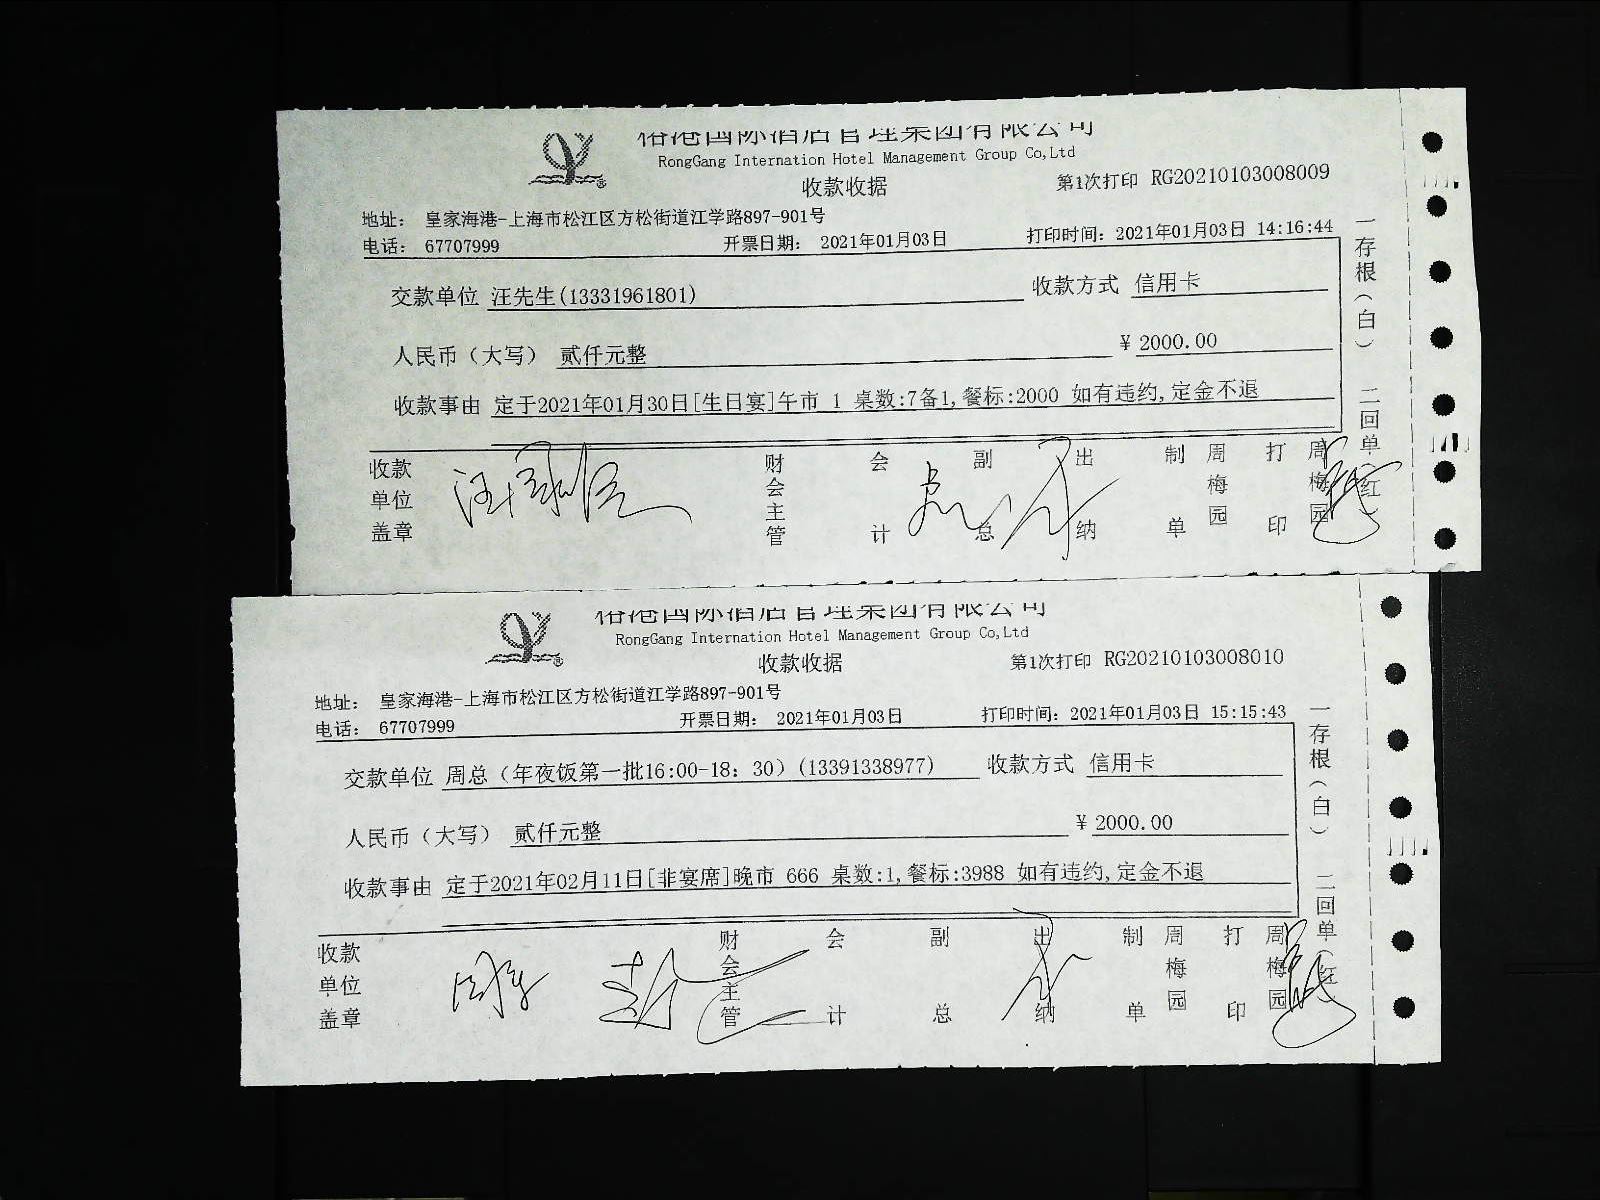 裕港国际酒店管理集团有限公司
RongGang Internation Hotel Management Group Co,Ltd
收款收据
第1次打印 RG20210103008009
地址： 皇家海港-上海市松江区方松街道江学路897-901号
电话： 67707999 开票日期： 2021年01月03日 打印时间：2021年01月03日 14:16:44
交款单位 汪先生(13331961801) 收款方式 信用卡
人民币（大写） 贰仟元整 ¥ 2000.00
收款事由 定于2021年01月30日[生日宴]午市 1 桌数:7备1,餐标:2000 如有违约,定金不退
收款单位盖章 财会主管 会计 副总 出纳 制单 周梅园 打印 周梅园
一存根（白） 二回单（红）
裕港国际酒店管理集团有限公司
RongGang Internation Hotel Management Group Co,Ltd
收款收据
第1次打印 RG20210103008010
地址： 皇家海港-上海市松江区方松街道江学路897-901号
电话： 67707999 开票日期： 2021年01月03日 打印时间：2021年01月03日 15:15:43
交款单位 周总（年夜饭第一批16:00-18：30）(13391338977) 收款方式 信用卡
人民币（大写） 贰仟元整 ¥ 2000.00
收款事由 定于2021年02月11日[非宴席]晚市 666 桌数:1,餐标:3988 如有违约,定金不退
收款单位盖章 财会主管 会计 副总 出纳 制单 周梅园 打印 周梅园
一存根（白） 二回单（红）